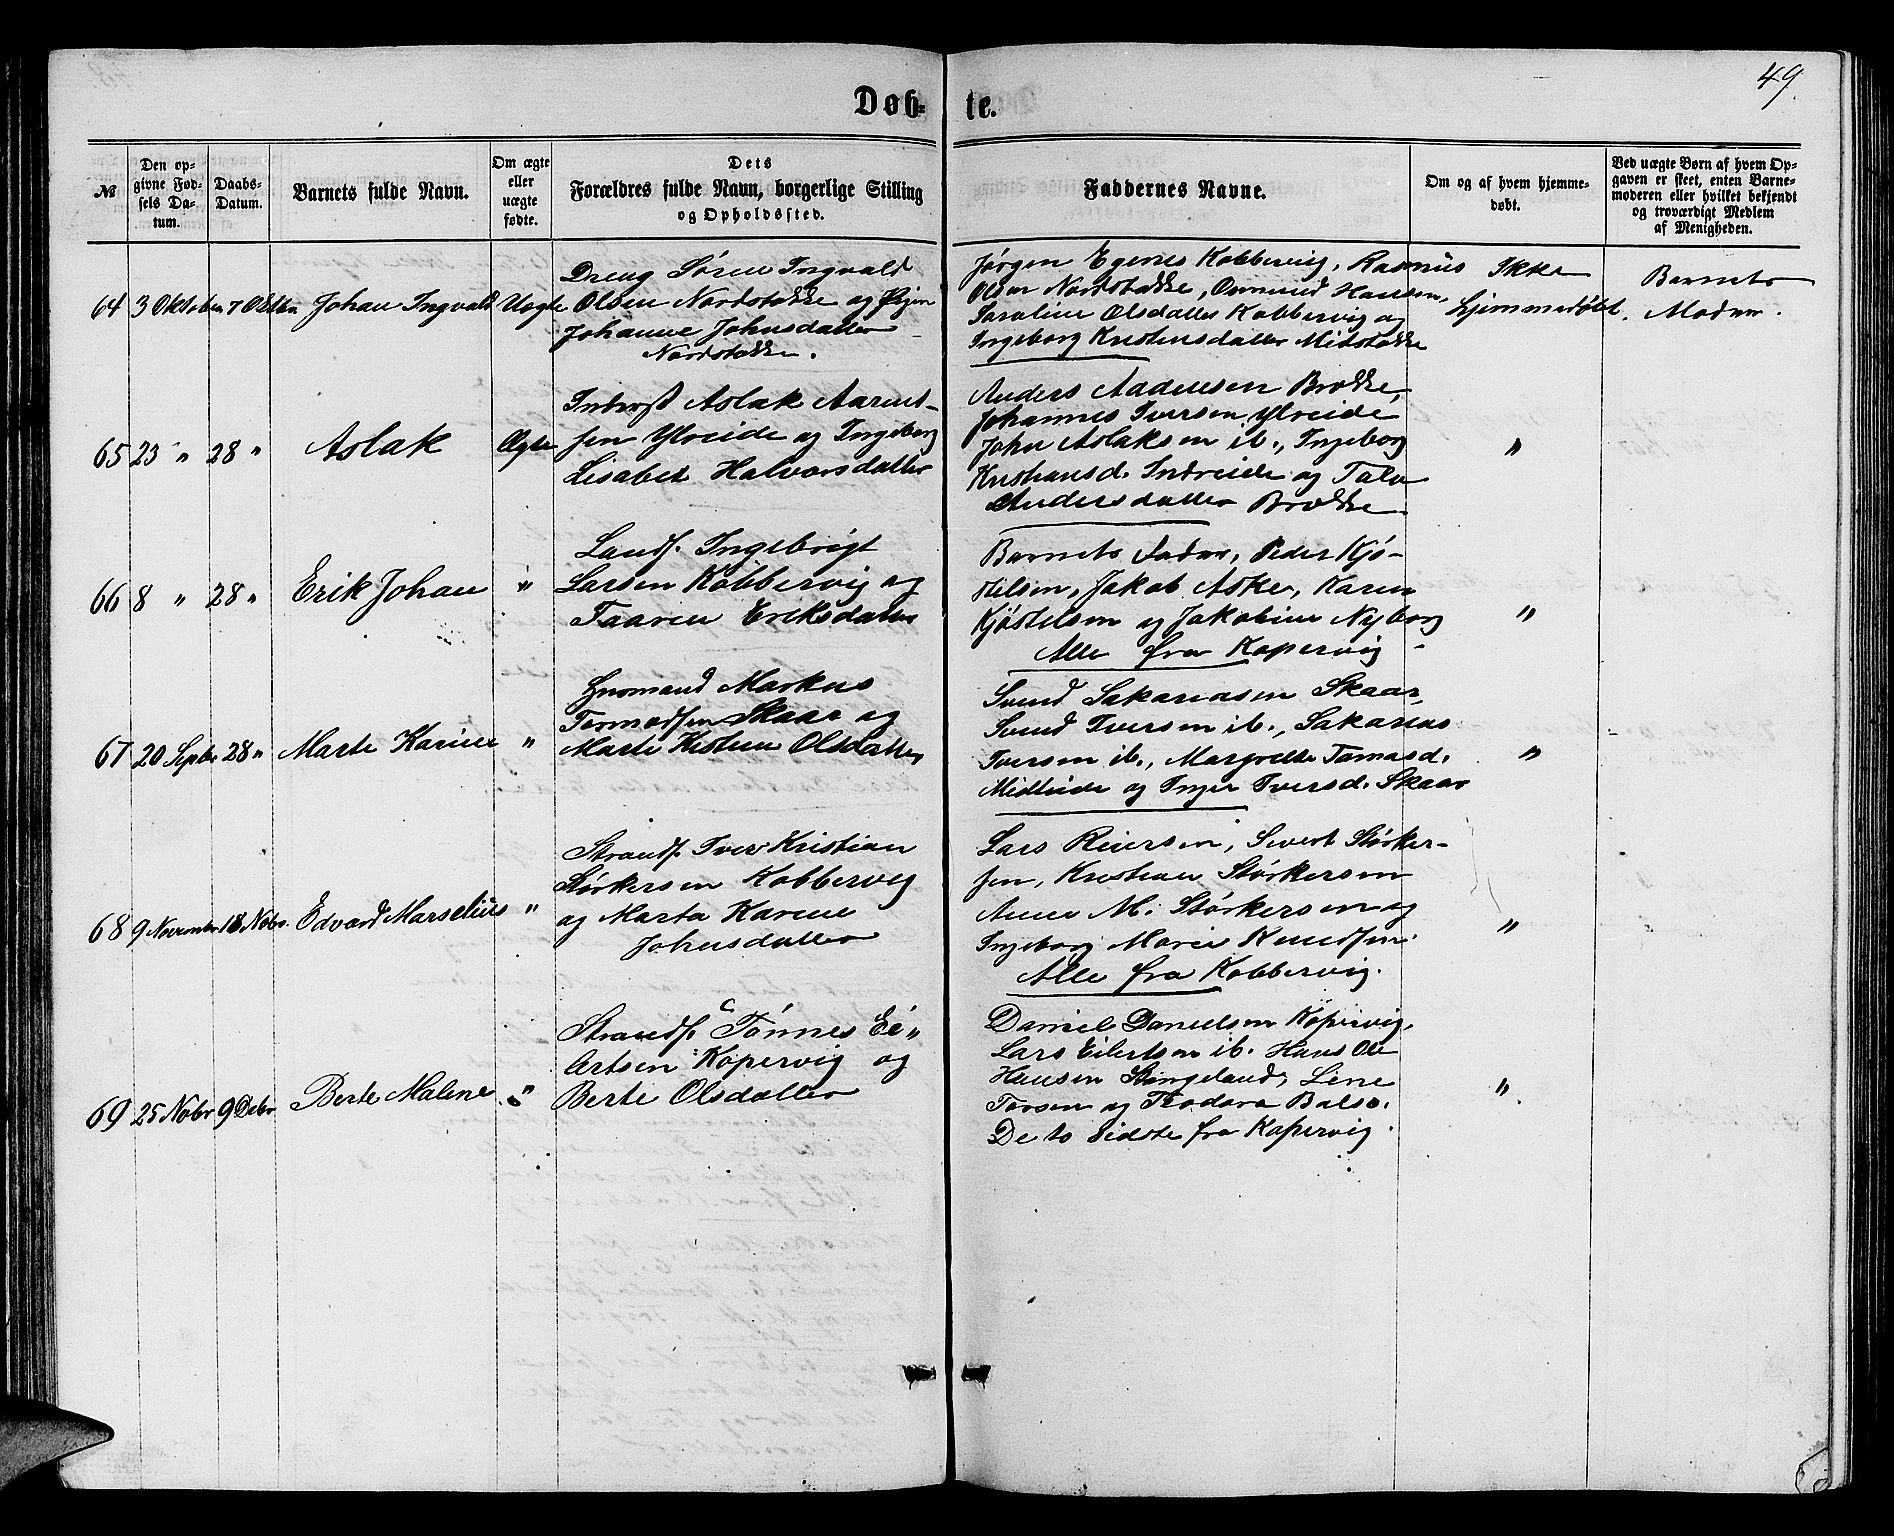 49.
Døb- te.
№
Den opgivne Fødsels Datum.
Daabs-Datum.
Barnets fulde Navn.
Om ægte eller uægte fødte.
Dets Forældres fulde Navn, borgerlige Stilling og Opholdssted.
Faddernes Navne.
Om og af hvem hjemmedøbt.
Ved uægte Børn af hvem Opgaven er skeet, enten Barnemoderen eller hvilket bekjendt og troværdigt Medlem af Menigheden.
64 3 Oktober 7 Oktbr Johan Ingvald Uægte
Dreng Søren Ingvald
Olsen Nordstokke og Pigen
Johanne Johnsdatter
Nordstokke.
Jørgen Egenes Kobbervig, Rasmus
Olsen Nordstokke, Osmund Hansen,
Karoline Olsdatter Kobbervig og
Ingeborg Kristensdatter Midstokke
Ikke
hjemmedøbt.
Barnets
Moder.
65 23 " 28 " Aslak Ægte
Inderst Aslak Aarent-
sen Ytreide og Ingeborg
Lisabet Halvorsdatter
Anders Aadnesen Brekke,
Johannes Iversen Ytreide
John Aslaksen ib., Ingeborg
Kristiansd. Indreide og Tale
Andersdatter Brekke.
"
66 8 " 28 " Erik Johan "
Landh. Ingebrigt
Larsen Kobbervig og
Taaren Eriksdatter
Barnets Fader, Peder Kjø-
stelsen, Jakob Aske, Karen
Kjøstelsen og Jakobine Nyborg
Alle fra Kopervig
"
67 20 Septbr 28 " Marte Karine "
Husmand Markus
Tormodsen Skaar og
Marte Kristine Olsdatter
Svend Sakariasen Skaar,
Svend Iversen ib., Sakarias
Iversen ib., Margrethe Tomasd.
Midteide og Inger Iversd. Skaar
"
68 9 November 18 Nobr. Edvard Marselius "
Strands. Iver Kristian
Størkersen Kobbervig
og Marta Karine
Johnsdatter
Lars Reiersen, Sivert Størker-
sen, Kristian Størkersen
Anne M. Størkersen og
Ingeborg Marie Knudsen.
Alle fra Kobbervig.
"
69 25 Nobr 9 Debr Berte Malene "
Strands. Tønnes Ei-
lertsen Kopervig og
Berte Olsdatter
Daniel Danielsen Kopervig,
Lars Eilertsen ib. Hans Ole
Hansen Stingeland, Line
Torsen og Teodora Balso.
De to sidste fra Kopervig.
"